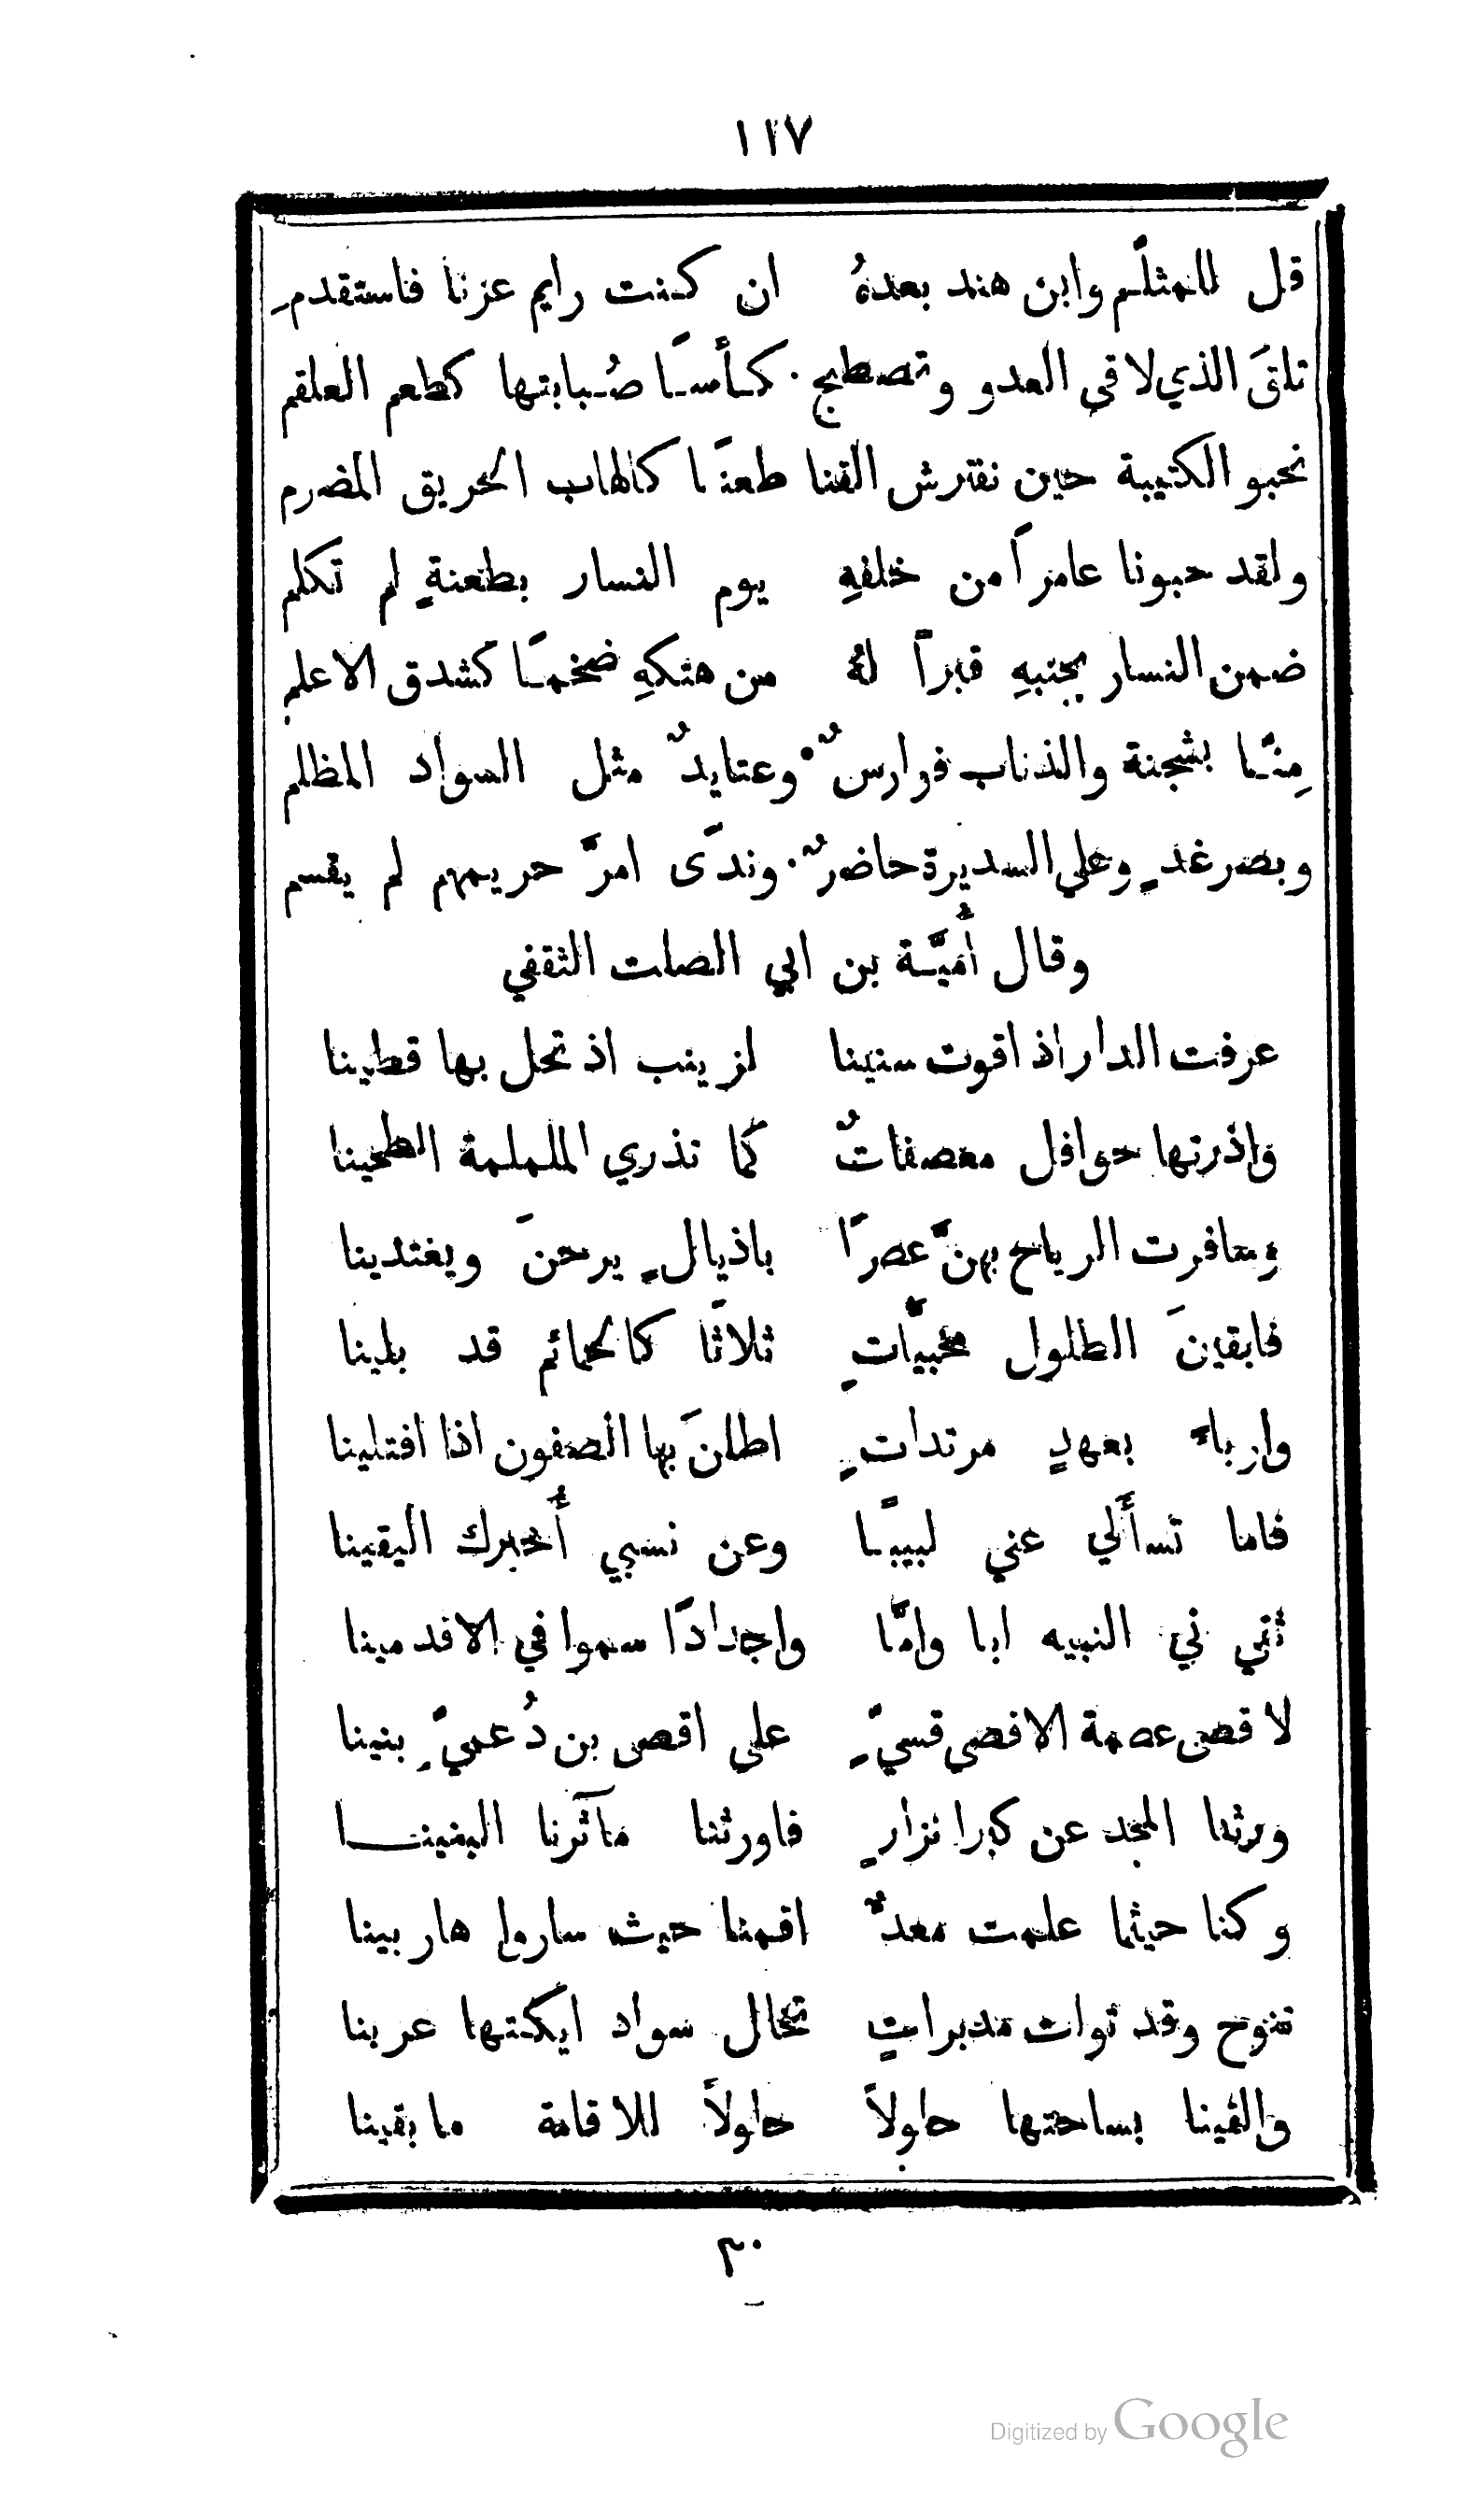 ١١٧
قل للمثلّم وابن هند بعدهُ ان كنت رايم عزنا فاستقدمِ
تلقَ الذي لاقى العدو وتصطبح كأسًا صُبابتها كطعم العلقم
نحبو الكتيبة حين نفترش القنا طعنًا كالهاب الحريق المضرم
ولقد حبونا عامراً من خلفهِ يوم النسار بطعنةٍ لم تكلم
ضمن النسار بجنبهِ قبراً لهُ من هتكهِ ضخمًا كشدق الاعلم
مِنّا بشجنة والذناب فوارسٌ وعتايدٌ مثل السواد المظلم
وبضرغدٍ وعلى السديرة حاضرٌ وندًى امرَّ حريمهم لم يقسم
وقال أُميَّة بن ابي الصلت الثقفي
عرفت الدار اذ اقوت سنينا لزينب اذ تحل بها قطينا
واذرتها حوافل معصفاتٌ كما تذري الململمة الطحينا
وسافرت الرياح بهنَّ عصرًا باذيالٍ يرحنَ ويغتدينا
فابقينَ الطلول مخبيَّاتٍ ثلاثًا كالحمائم قد بلينا
وارباء بعهدٍ مرتداتٍ اطلنَ بها الصفون اذا افتلينا
فاما تسأَلي عني لبيبًا وعن نسبي أُخبرك اليقينا
ثني ني النبيه ابا وامًّا واجدادًا سموا في الاقدمينا
لاقصى عصمة الافصى قسيٍّ على اقصى بن دُعميٍّ بنينا
ورثنا المجد عن كبرا نزارٍ فاورثنا مآثرنا البنينا
وكنا حيثما علمت معدٌّ اقمنا حيث ساروا هاربينا
تنوح وقد تولت مدبراتٍ تخال سواد ايكتها عرينا
والقينا بساحتها حلولاً حلولاً للاقامة ما بقينا
٣٠
Digitized by Google